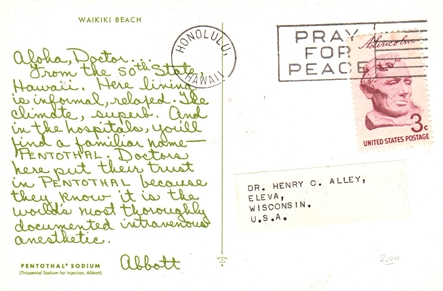 WAIKIKI BEACH
Aloha, Doctor.
From the 50th State,
Hawaii. Here living
is informal, relaxed. The
climate, superb. And
in the hospitals, you'll
find a familiar name—
PENTOTHAL. Doctors
here put their trust
in PENTOTHAL because
they know it is the
world's most thoroughly
documented intravenous
anesthetic.
Abbott
PENTOTHAL® SODIUM
(Thiopental Sodium for Injection, Abbott)
HONOLULU,
HAWAII
PRAY
FOR
PEACE
A. Lincoln
3c
UNITED STATES POSTAGE
DR. HENRY C. ALLEY,
ELEVA,
WISCONSIN.
U.S.A.
2.00